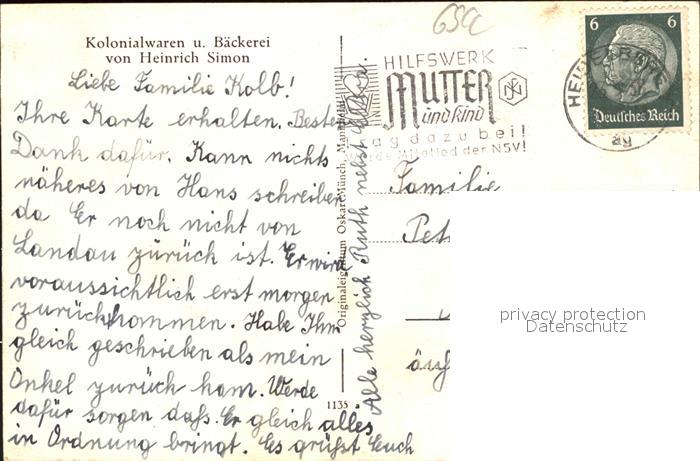 Kolonialwaren u. Bäckerei
von Heinrich Simon
Liebe Familie Kolb!
Ihre Karte erhalten. Besten
Dank dafür. Kann nichts
näheres von Hans schreiben
da Er noch nicht von
Landau zurück ist. Er wird
voraussichtlich erst morgen
zurückkommen. Habe Ihm
gleich geschrieben als mein
Onkel zurück kam. Werde
dafür sorgen dass Er gleich alles
in Ordnung bringt. Es grüßt Euch
Alle herzlich Ruth nebst
Originaleigentum Oskar Münch, Mannheim
1135
65a
HILFSWERK
MUTTER
und Kind
trag dazu bei!
werde Mitglied der NSV!
6 6
Deutsches Reich
ag
Familie
Pet
privacy protection
Datenschutz